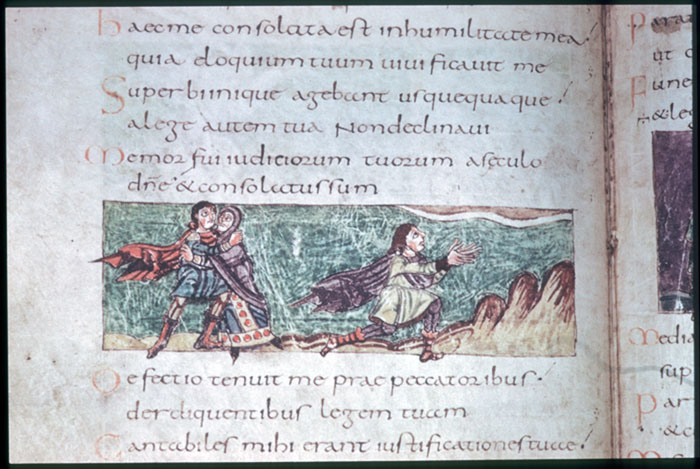 Haec me consolata est in humilitate mea
quia eloquium tuum uiuificauit me
Superbi inique agebant usquequaque
a lege autem tua non declinaui
Memor fui iudiciorum tuorum a seculo
dn̄e & consolatus sum
Defectio tenuit me prae peccatoribus
derelinquentibus legem tuam
Cantabiles mihi erant iustificationes tuae
Para
ut c
Fune
& leg
Media
sup
Par
& c
M